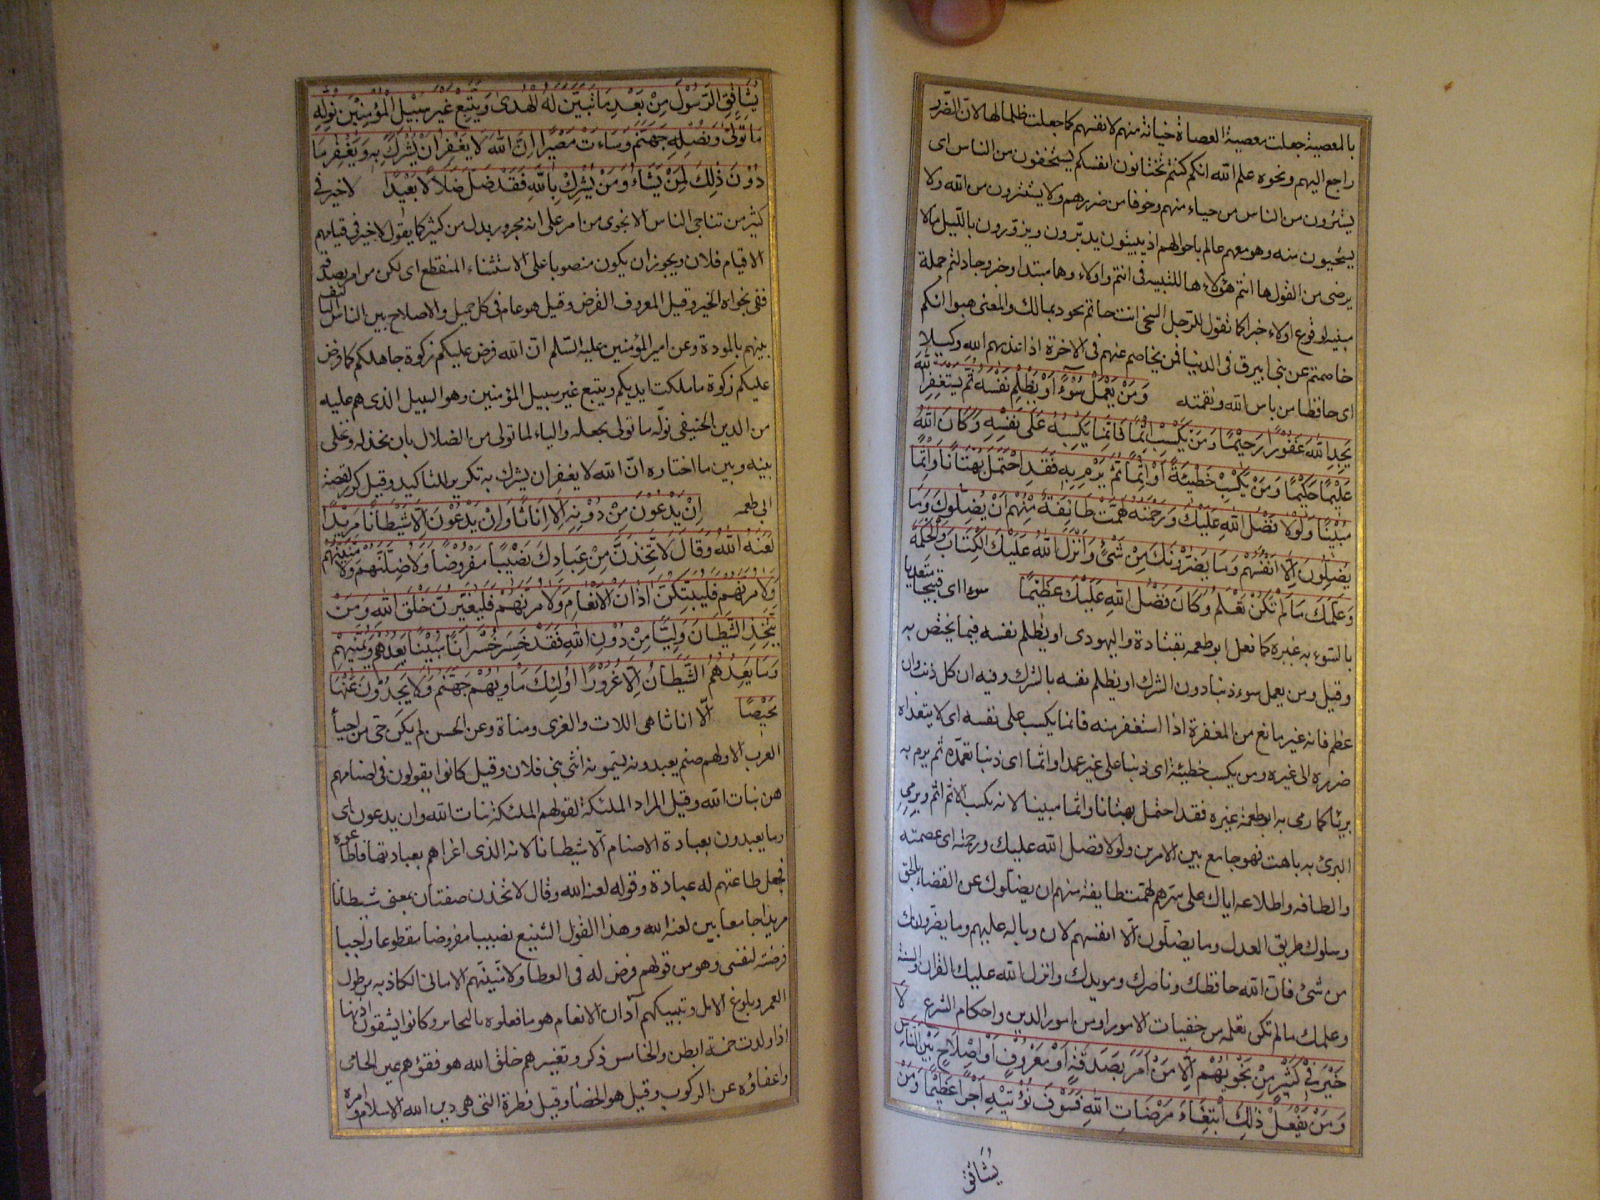 بالمعصية جعلت معصية العصاة خيانة منهم لانفسهم كما جعلت ظلما لها لان الضرر
راجع اليهم ونحوه علم الله انكم كنتم تختانون انفسكم يستخفون من الناس اى
يستترون من الناس من حياء منهم وخوفا من ضررهم ولا يستترون من الله ولا
يستحيون منه وهو معهم عالم باحوالهم اذ يبيتون يدبّرون ويزوّرون بالليل مالا
يرضى من القول ها انتم هؤلاء ها للتنبيه فى انتم واولاء وهما مبتدا وخبر وجادلتم جملة
مبنية لوقوع اولاء خبرا كما تقول للرجل السخى انت حاتم تجود بمالك والمعنى هبوا انكم
خاصمتم عن بنى ابيرق فى الدنيا فمن يخاصم عنهم فى الاخرة اذا عذبهم الله وكيلا
اى حافظا من باس الله ونقمته وَمَنْ يَعْمَلْ سُوءًا اَوْ يَظْلِمْ نَفْسَهُ ثُمَّ يَسْتَغْفِرِ اللّٰهَ
يَجِدِ اللّٰهَ غَفُوْرًا رَحِيْمًا وَمَنْ يَكْسِبْ اِثْمًا فَاِنَّمَا يَكْسِبُهُ عَلٰى نَفْسِهِ وَكَانَ اللّٰهُ
عَلِيْمًا حَكِيْمًا وَمَنْ يَكْسِبْ خَطِيْئَةً اَوْ اِثْمًا ثُمَّ يَرْمِ بِهِ فَقَدِ احْتَمَلَ بُهْتَانًا وَاِثْمًا
مُبِيْنًا وَلَوْلَا فَضْلُ اللّٰهِ عَلَيْكَ وَرَحْمَتُهُ لَهَمَّتْ طَائِفَةٌ مِنْهُمْ اَنْ يُضِلُّوْكَ وَمَا
يُضِلُّوْنَ اِلَّا اَنْفُسَهُمْ وَمَا يَضُرُّوْنَكَ مِنْ شَىْءٍ وَاَنْزَلَ اللّٰهُ عَلَيْكَ الْكِتَابَ وَالْحِكْمَةَ
وَعَلَّمَكَ مَا لَمْ تَكُنْ تَعْلَمُ وَكَانَ فَضْلُ اللّٰهِ عَلَيْكَ عَظِيْمًا سوءا اى قبيحا متعديا
بالسوء به غيره كما فعل ابو طعمه بقتادة واليهودى او يظلم نفسه فيما يختص به
وقيل ومن يعمل سوء ذنبا دون الشرك او يظلم نفسه بالشرك وفيه ان كل ذنب وان
عظم فانه غير مانع من المغفرة اذا استغفر منه فانما يكسبه على نفسه اى لا يتعداه
ضرره الى غيره ومن يكسب خطيئة اى ذنبا على غير عمد او اثما اى ذنبا تعمّده ثم يرم به
بريئا كما رمى به ابو طعمة غيره فقد احتمل بهتانا واثما مبينا لانه بكسب الاثم اثم وبرمى
البرئ به باهت فهو جامع بين الامرين ولولا فضل الله عليك ورحمته اى عصمته
والطافه واطلاعه اياك على سرّهم لهمّت طايفة منهم ان يضلّوك عن القضاء بالحق
وسلوك طريق العدل وما يضلّون الّا انفسهم لان وباله عليهم وما يضرّونك
من شئ فان الله حافظك وناصرك ومويدك وانزل الله عليك القران والسنة
وعلمك مالم تكن تعلم من خفيات الامور او من امور الدين واحكام الشرع لَا
خَيْرَ فِىْ كَثِيْرٍ مِنْ نَجْوٰيهُمْ اِلَّا مَنْ اَمَرَ بِصَدَقَةٍ اَوْ مَعْرُوْفٍ اَوْ اِصْلَاحٍ بَيْنَ النَّاسِ
وَمَنْ يَفْعَلْ ذٰلِكَ ابْتِغَاءَ مَرْضَاتِ اللّٰهِ فَسَوْفَ نُؤْتِيْهِ اَجْرًا عَظِيْمًا وَمَنْ
يُشَاقِقِ
يُشَاقِقِ الرَّسُوْلَ مِنْ بَعْدِ مَا تَبَيَّنَ لَهُ الْهُدٰى وَيَتَّبِعْ غَيْرَ سَبِيْلِ الْمُؤْمِنِيْنَ نُوَلِّهِ
مَا تَوَلّٰى وَنُصْلِهِ جَهَنَّمَ وَسَاءَتْ مَصِيْرًا اِنَّ اللّٰهَ لَا يَغْفِرُ اَنْ يُشْرَكَ بِهِ وَيَغْفِرُ مَا
دُوْنَ ذٰلِكَ لِمَنْ يَشَاءُ وَمَنْ يُشْرِكْ بِاللّٰهِ فَقَدْ ضَلَّ ضَلَالًا بَعِيْدًا لا خير فى
كثير من تناجى الناس الا نجوى من امر على انه مجرور بدل من كثير كما يقول لا خير فى قيامهم
الا قيام فلان ويجوز ان يكون منصوبا على الاستثناء المنقطع اى لكن من امر بصدقة
ففى نجواه الخير وقيل المعروف القرض وقيل هو عام فى كل جميل والاصلاح بين الناس
بينهم بالمودة وعن امير المؤمنين عليه السّلم انّ الله فرض عليكم زكوة جاهلكم كما فرض
عليكم زكوة ما ملكت ايديكم ويتبع غير سبيل المؤمنين وهو السبيل الذى هم عليه
من الدين الحنيفى نولّه ما تولى نجعله واليا لما تولى من الضلال بان نخذله ونخلى
بينه وبين ما اختاره انّ الله لا يغفر ان يشرك به تكرير للتاكيد وقيل كرر لقصة
ابى طعمه اِنْ يَدْعُوْنَ مِنْ دُوْنِهِ اِلَّا اِنَاثًا وَاِنْ يَدْعُوْنَ اِلَّا شَيْطَانًا مَرِيْدًا
لَعَنَهُ اللّٰهُ وَقَالَ لَاَتَّخِذَنَّ مِنْ عِبَادِكَ نَصِيْبًا مَفْرُوْضًا وَلَاُضِلَّنَّهُمْ وَلَاُمَنِّيَنَّهُمْ
وَلَاٰمُرَنَّهُمْ فَلَيُبَتِّكُنَّ اٰذَانَ الْاَنْعَامِ وَلَاٰمُرَنَّهُمْ فَلَيُغَيِّرُنَّ خَلْقَ اللّٰهِ وَمَنْ
يَتَّخِذِ الشَّيْطَانَ وَلِيًّا مِنْ دُوْنِ اللّٰهِ فَقَدْ خَسِرَ خُسْرَانًا مُبِيْنًا يَعِدُهُمْ وَيُمَنِّيْهِمْ
وَمَا يَعِدُهُمُ الشَّيْطَانُ اِلَّا غُرُوْرًا اُولٰئِكَ مَاْوٰيهُمْ جَهَنَّمُ وَلَا يَجِدُوْنَ عَنْهَا
مَحِيْصًا الّا اناثا هى اللات والعزى ومناة وعن الحسن لم يكن حى من احياء
العرب الا ولهم صنم يعبدونه يسمونه انثى بنى فلان وقيل كانوا يقولون فى اصنامهم
هن بنات الله وقيل المراد الملئكة لقولهم الملئكة بنات الله وان يدعون اى
وما يعبدون بعبادة الاصنام الّا شيطانا لانه الذى اغراهم بعبادتها فاطاعوه
فجعل طاعتهم له عبادة وقوله لعنه الله وقال لاتخذن صفتان بمعنى شيطانا
مريدا جامعا بين لعنة الله وهذا القول الشنيع نصيبا مفروضا مقطوعا واجبا
فرضته لنفسى وهو من قولهم فرض له فى العطا ولامنّينّهم الامانى الكاذبة من طول
العمر وبلوغ الامل وتبتيكهم آذان الانعام هو ما فعلوه بالبحاير وكانوا يشقون اذنها
اذا ولدت خمسة ابطن والخامس ذكر وتغييرهم خلق الله هو فقؤهم عين الحامى
واعفاؤه عن الركوب وقيل هو الخصا وقيل فطرة الله التى هى دين الله الاسلام وامره